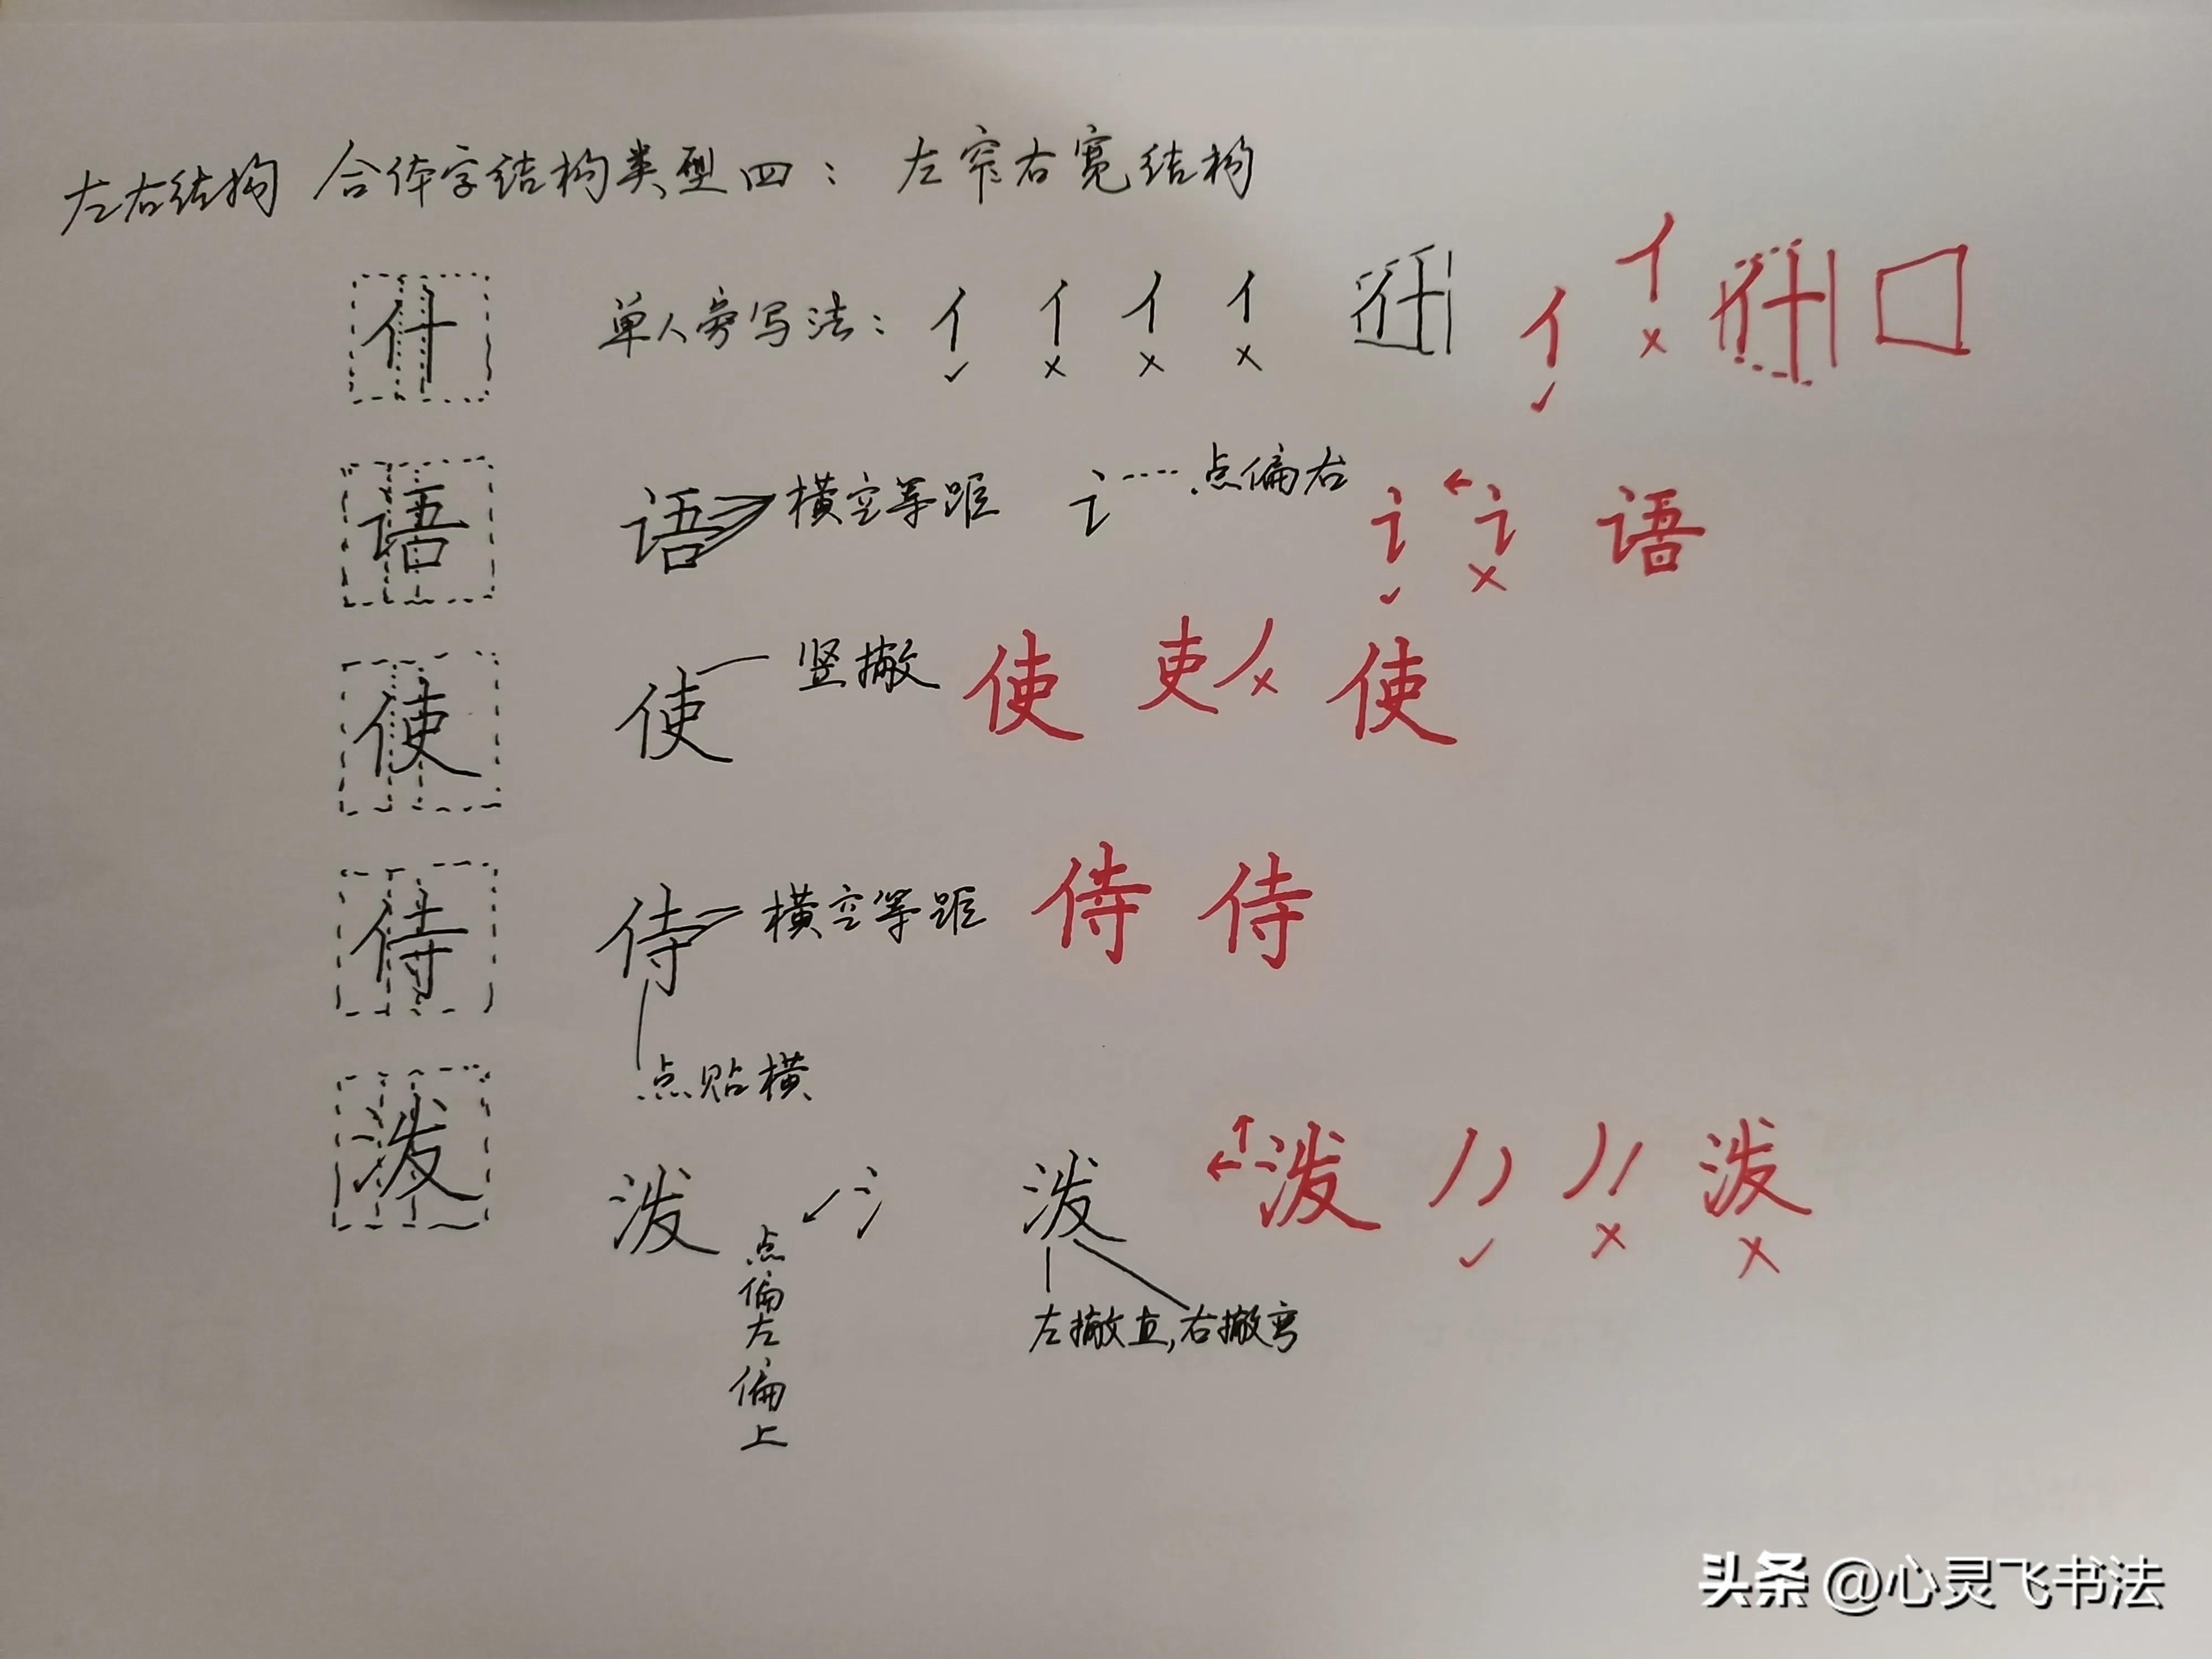 左右结构 合体字结构类型四：左窄右宽结构
什 单人旁写法：亻 亻 亻 亻 什 亻 亻 什 口
✓ × × × ✓ ×
语 语 横空等距 讠 点偏右 讠 讠 语
✓ ×
使 使 竖撇 使 吏 丿 使
×
侍 侍 横空等距 侍 侍
点贴横
泼 泼 氵 泼 泼 泼
✓ × ×
点偏左偏上
左撇直，右撇弯
头条 @心灵飞书法